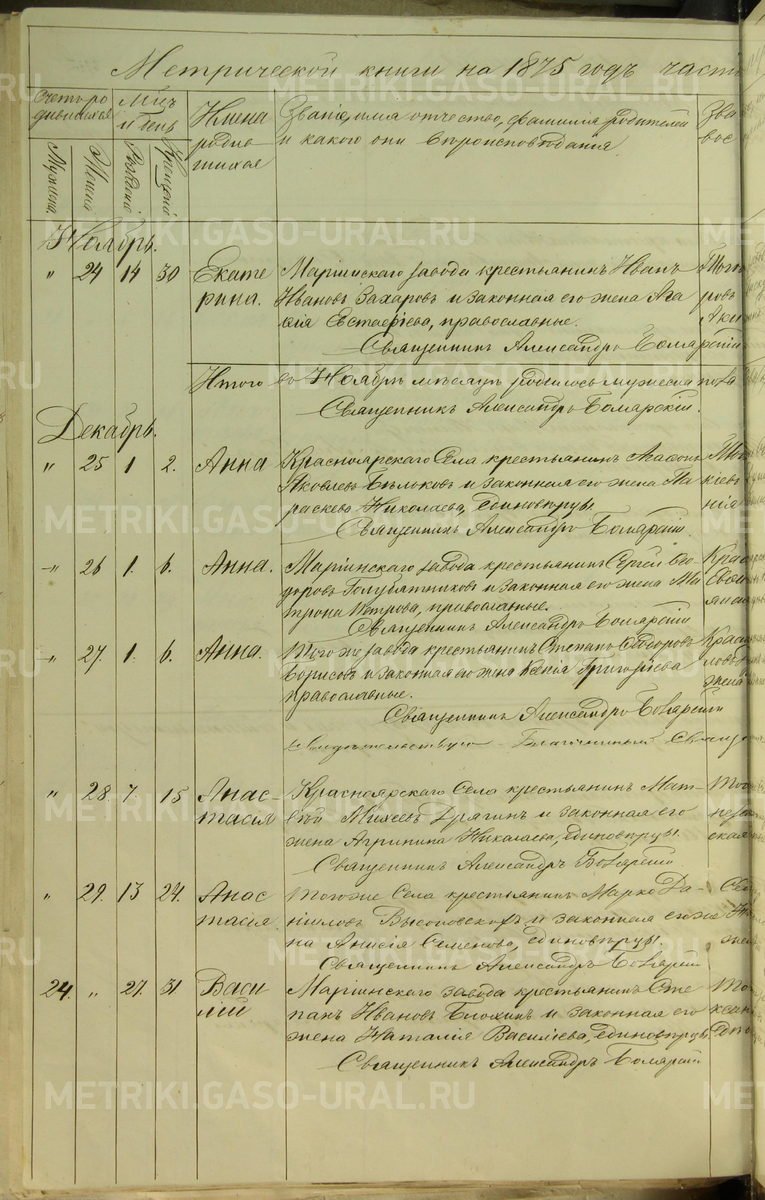 Метрической книги на 1875 годъ часть
Счетъ родившихся
Мѣсяцъ и день
Имена родившихся
Званіе, имя отчество, фамилія родителей
и какого они вѣроисповѣданія.
Зва
вос
Мужеска
Женска
Рожденія
Крещенія
Ноябрь.
" 24 14 30 Екате Маріинскаго завода крестьянинъ Иванъ
рина. Ивановъ Захаровъ и законная его жена Ага
Евстафіева, православные.
Священникъ Александръ Боярскій
Итого во Ноябрѣ мѣсяцѣ родилось мужеска пола
Священникъ Александръ Боярскій.
Декабрь.
" 25 1 2. Анна Красноярскаго Села крестьянинъ
Яковлевъ и законная его жена Па
раскева Николаева, единовѣрцы
Священникъ Александръ Боярскій
" 26 1. 6. Анна. Маріинскаго завода крестьянинъ Сергѣй Ѳео
доровъ Голубятниковъ и законная его жена Ма
трона Петрова, православные.
Священникъ Александръ Боярскій
" 27. 1. 6. Анна. Того же завода крестьянинъ Степанъ Ѳеодоровъ
Борисовъ и законная его жена Ксенія Григорьева
православные.
Священникъ Александръ Боярскій
свидѣтельствую Благочинный Свяще
" 28. 7. 15 Анас- Красноярскаго Села крестьянинъ Мат-
тасія вѣй Михеевъ Дрягинъ и законная его
жена Агрипина Николаева, единовѣрцы.
Священникъ Александръ Боярскій
" 29. 13 24. Анас Того же Села крестьянинъ Марко Да-
тасія. ниловъ и законная его же
на Анисія Семенова, единовѣрцы.
Священникъ Александръ Боярскій
24. " 27. 31. Васи Маріинскаго завода крестьянинъ Сте
лій панъ Ивановъ Блохинъ и законная его
жена Наталія Василіева, единовѣрцы.
Священникъ Александръ Боярскій
METRIKI.GASO-URAL.RU